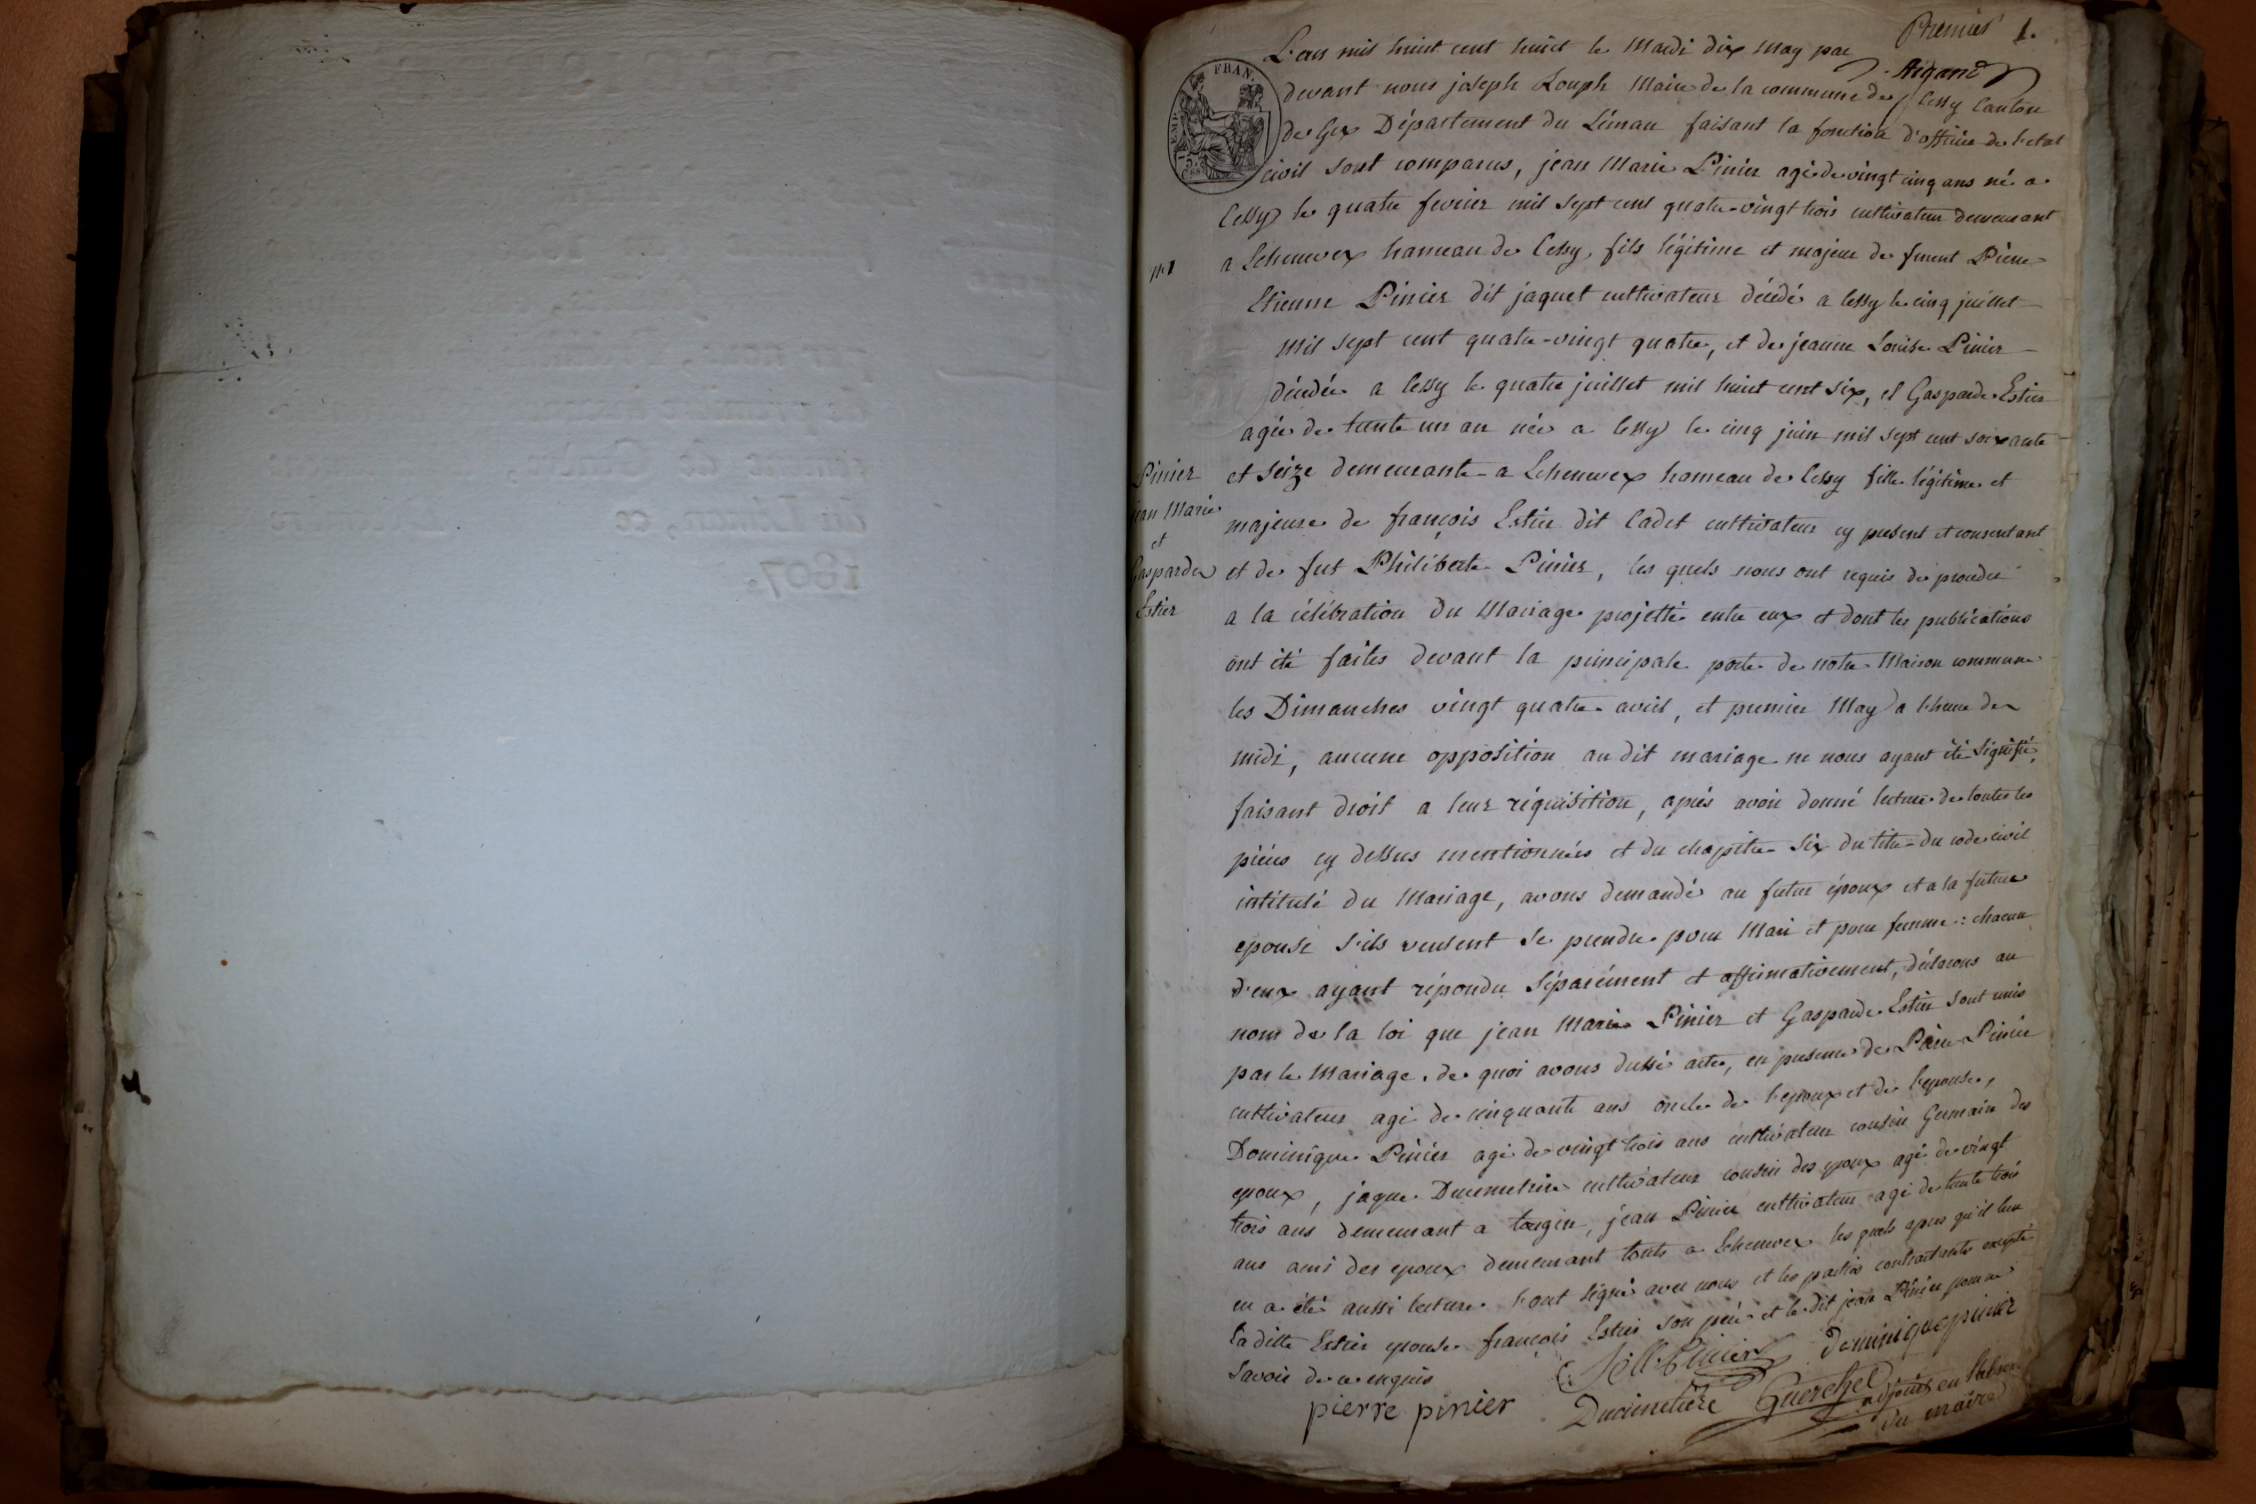 Premier 1.
L'an mil huit cent huict le Mardi dix May par
Argand
devant nous joseph Rouph Maire de la commune de Cessy Canton
FRAN.
de Gex Département du Léman faisant la fonction d'officier de l'etat
civil sont comparus, jean Marie Pinier agé de vingt cinq ans né a
Cessy le quatre fevrier mil sept cent quatre-vingt trois cultivateur demeurant
a Schenevex hameau de Cessy, fils légitime et majeur de feuent Pierre
n. 1
Etienne Pinier dit jaquet cultivateur décédé a Cessy le cinq juillet
mil sept cent quatre-vingt quatre, et de jeanne Louise Pinier
décédée a Cessy le quatre juillet mil huit cent six, et Gasparde Estier
agée de trente un an née a Cessy le cinq juin mil sept cent soixante
et seize demeurante a Schenevex hameau de Cessy fille légitime et
majeure de françois Estier dit Cadet cultivateur cy present et consentant
et de fut Philiberte Pinier, les quels nous ont requis de proceder
a la célébration du Mariage projetté entre eux et dont les publications
ont été faites devant la principale porte de notre Maison commune
les Dimanches vingt quatre avril, et premier May a l'heure de
midi, aucune opposition au dit mariage ne nous ayant été signifié,
faisant droit a leur réquisition, après avoir donné lecture de toutes les
pièces cy dessus mentionnées et du chapitre six du titre du code civil
intitulé du Mariage, avons demandé au futur époux et a la future
epouse s'ils veulent se prendre pour Mari et pour femme: chacun
d'eux ayant répondu séparément et affirmativement, déclarons au
nom de la loi que jean Marie Pinier et Gasparde Estier sont unis
par le Mariage. de quoi avons dressé acte, en presence de Pierre Pinier
cultivateur agé de cinquante ans oncle de l'epoux et de l'epouse,
Dominique Pinier agé de vingt trois ans cultivateur cousin Germain des
epoux, jaque Ducimetiere cultivateur cousin des epoux agé de vingt
trois ans demeurant a tougin, jean Pinier cultivateur agé de trente trois
ans ami des epoux demeurant touts a Schenevex les quels apres qu'il leur
en a été aussi lecture l'ont signé avec nous et les parties contractantes excepté
la ditte Estier epouse françois Estier son père et le dit jean Pinier pour ne
savoir de ce enquis
Pinier
jean Marie
et
Gasparde
Estier
Pinier Dominique pinier
pierre pinier Ducimetiere Guerchet adjoint en l'absence
du maire